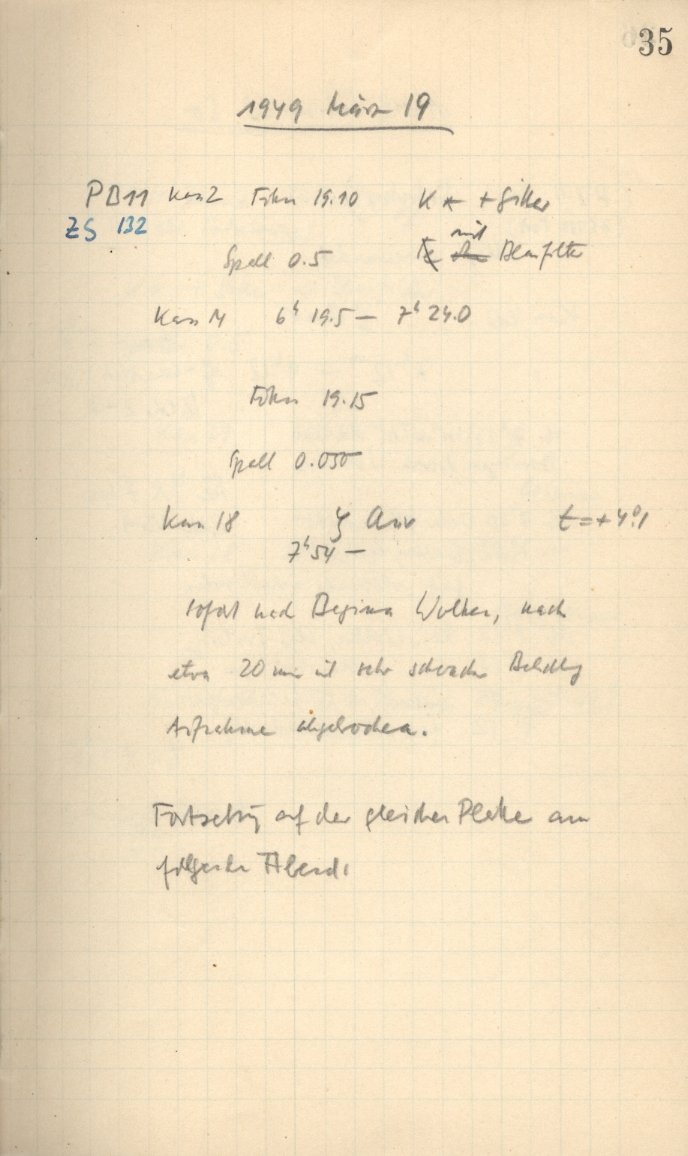 35
1949 März 19
PB11 Kass 2 Fokus 19.10 K * + Gitter
ZS 132 mit
Spalt 0.5 Blaufilter
Kass 14 6h 19.5 — 7h 24.0
Fokus 19.15
Spalt 0.050
Kass 18 ζ Aur t = +4°.1
7h 54 —
sofort nach Beginn Wolken, nach
etwa 20 min mit sehr schwacher Belichtg
Aufnahme abgebrochen.
Fortsetzung auf der gleichen Platte am
folgenden Abend.